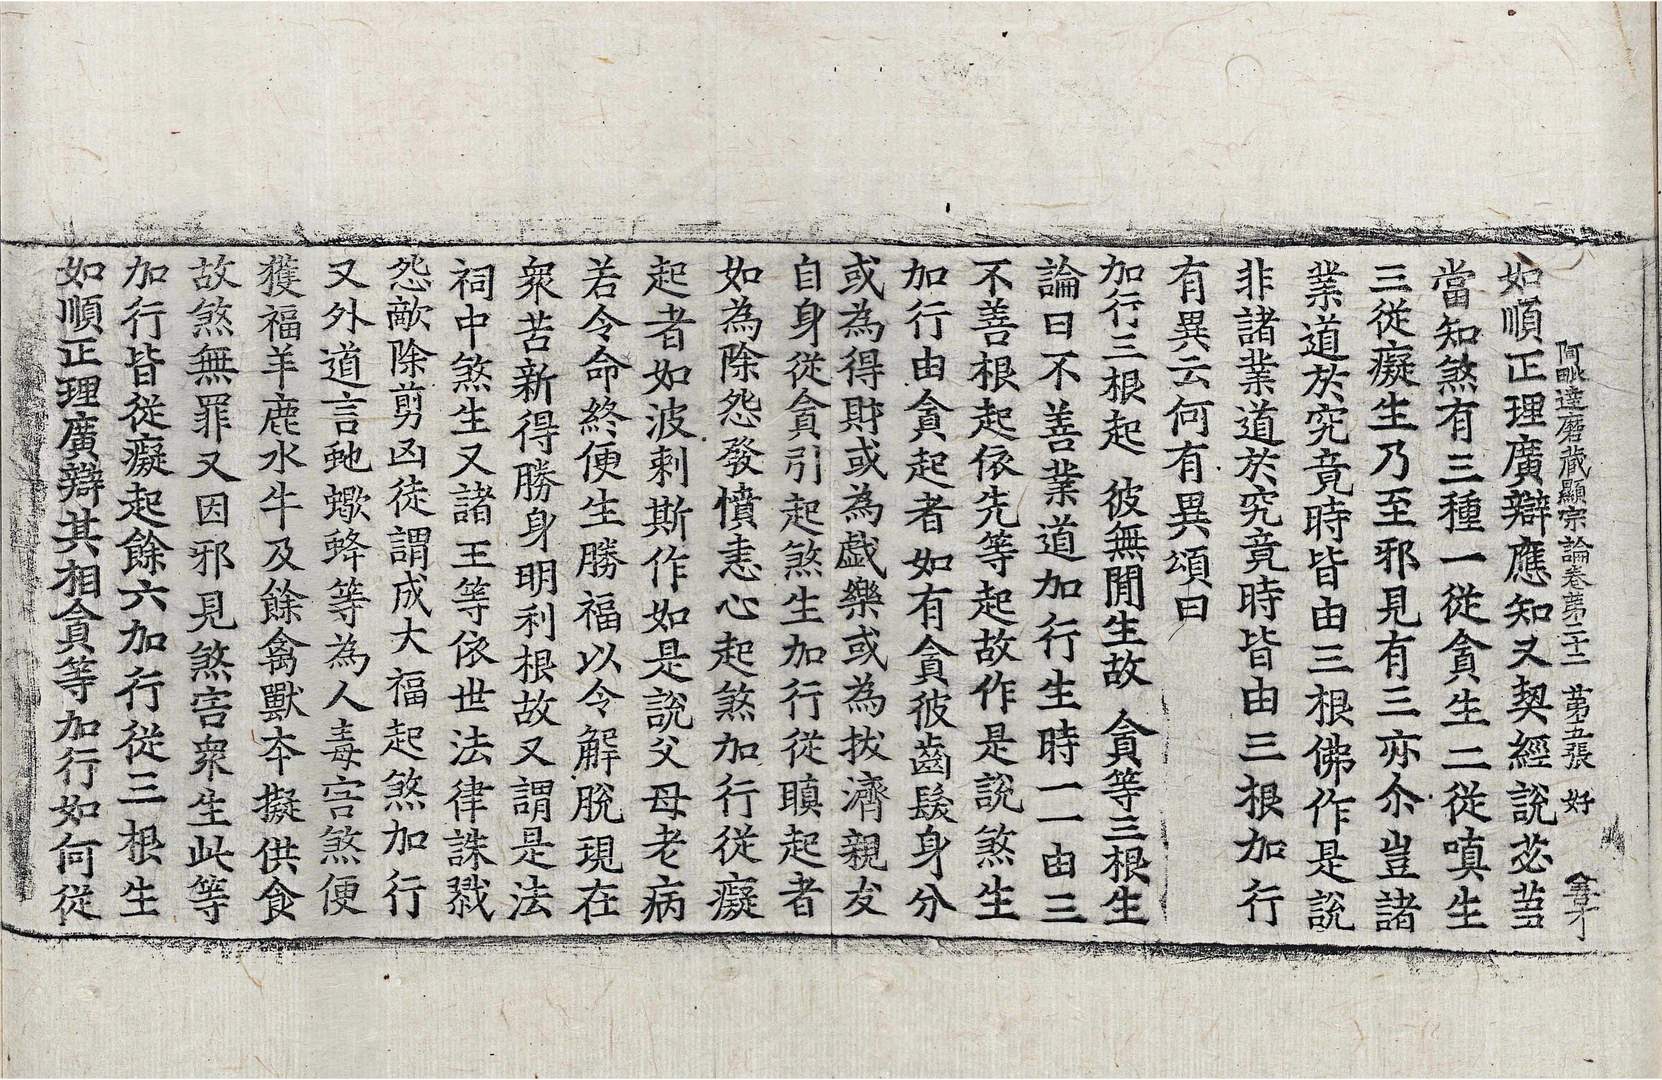 阿毗達磨藏顯宗論卷第二十二 第五張 好
如順正理廣辯應知又契經說苾芻
當知煞有三種一從貪生二從嗔生
三從癡生乃至邪見有三亦尒豈諸
業道於究竟時皆由三根佛作是說
非諸業道於究竟時皆由三根加行
有異云何有異頌曰
加行三根起 彼無閒生故 貪等三根生
論曰不善業道加行生時一一由三
不善根起依先等起故作是說煞生
加行由貪起者如有貪彼齒髮身分
或為得財或為戲樂或為拔濟親友
自身從貪引起煞生加行從瞋起者
如為除怨發憤恚心起煞加行從癡
起者如波剌斯作如是說父母老病
若令命終便生勝福以令解脫現在
衆苦新得勝身明利根故又謂是法
祠中煞生又諸王等依世法律誅戮
怨敵除剪凶徒謂成大福起煞加行
又外道言虵蠍蜂等為人毒害煞便
獲福羊鹿水牛及餘禽獸本擬供食
故煞無罪又因邪見煞害衆生此等
加行皆從癡起餘六加行從三根生
如順正理廣辯其相貪等加行如何從